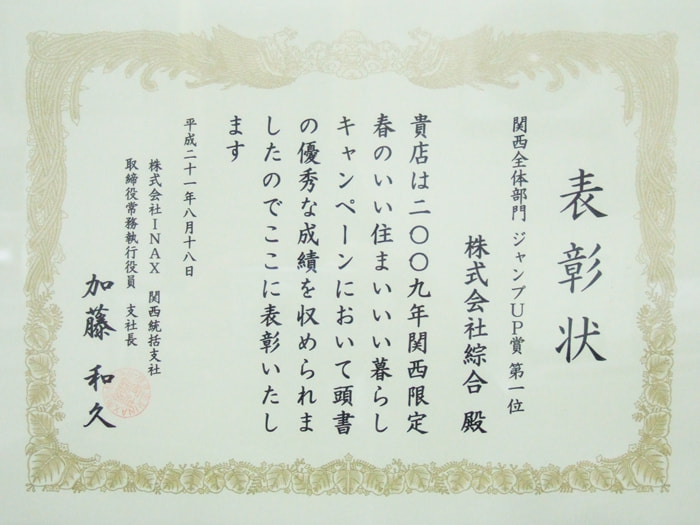 表彰状
関西全体部門 ジャンプUP賞 第一位
株式会社綜合 殿
貴店は二〇〇九年関西限定
春のいい住まいいい暮らし
キャンペーンにおいて頭書
の優秀な成績を収められま
したのでここに表彰いたし
ます
平成二十一年八月十八日
株式会社INAX 関西統括支社
取締役常務執行役員 支社長
加藤 和久